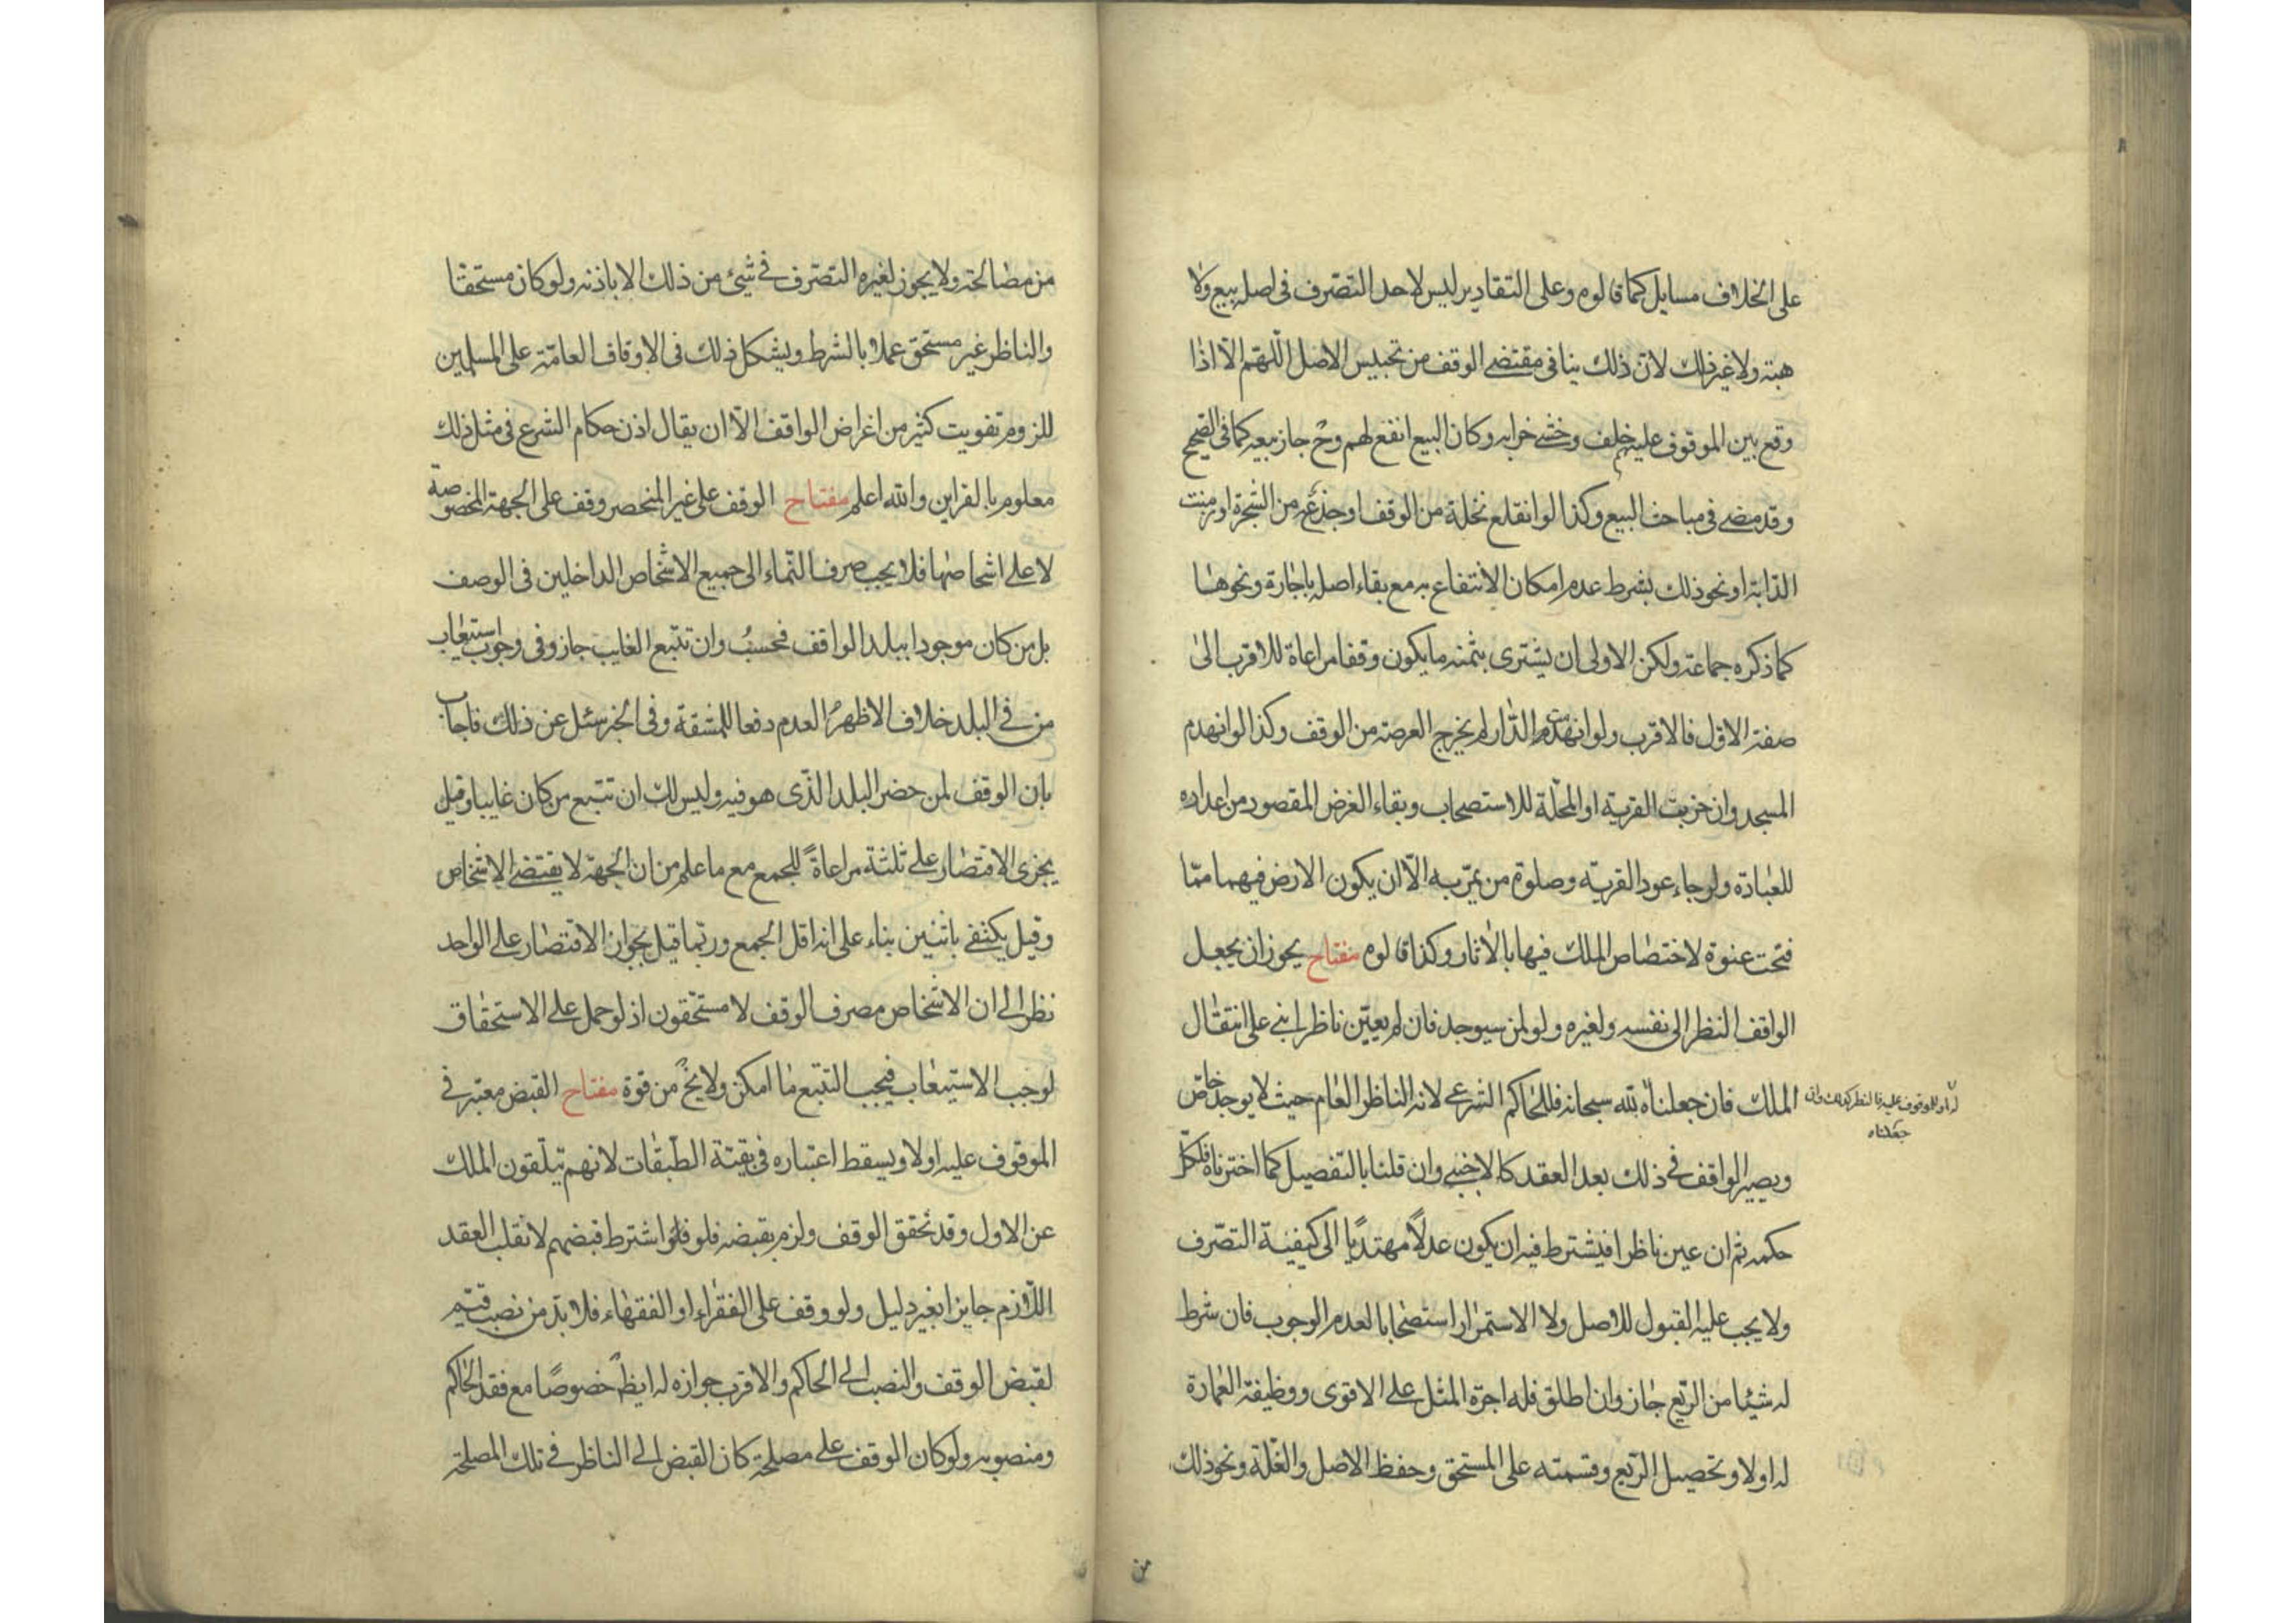 على الخلاف مسايل كما قالوه وعلى التقادير ليس لاحد التصرف في اصله ببيع ولا
هبته ولا غير ذلك لان ذلك ينافي مقتضى الوقف من تحبيس الاصل اللهم الا اذا
وقع بين الموقوف عليهم خلف وخشى خرابه وكان البيع انفع لهم وح جاز بيعه كما في الصحيح
وقد مضى في مباحث البيع وكذا لو انقلع نخلة من الوقف او جذع من الشجرة او زمنت
الدابة او نحو ذلك بشرط عدم امكان الانتفاع به مع بقاء اصله باجارة ونحوها
كما ذكره جماعة ولكن الاولى ان يشترى بثمنه ما يكون وقفا مراعاة للاقرب الى
صفة الاول فالاقرب ولو انهدمت الدار لم يخرج العرصة من الوقف وكذا لو انهدم
المسجد وان خربت القرية او المحلة للاستصحاب وبقاء الغرض المقصود من اعداده
للعبادة ولو جاء عود القرية وصلوة من يمر به الا ان يكون الارض فيهما مما
فتحت عنوة لاختصاص الملك فيها بالاثار وكذا قالوه مفتاح يجوز ان يجعل
الواقف النظر الى نفسه ولغيره ولو لمن سيوجد فان لم يعين ناظرا بنى على انتقال
الملك فان جعلناه لله سبحانه فللحاكم الشرعي لانه الناظر العام حيث لا يوجد خاص
له او للموقوف عليه فالنظر كذلك وان
جعلناه
ويصير الواقف في ذلك بعد العقد كالاجنبي وان قلنا بالتفصيل كما اخترناه فلكل
حكمه ثم ان عين ناظرا فيشترط فيه ان يكون عدلا مهتديا الى كيفية التصرف
ولا يجب عليه القبول للاصل ولا الاستمرار استصحابا لعدم الوجوب فان شرط
له شيئا من الريع جاز وان اطلق فله اجرة المثل على الاقوى ووظيفة العمارة
له اولا وتحصيل الريع وقسمته على المستحق وحفظ الاصل والغلة ونحو ذلك
من
من مصالحه ولا يجوز لغيره التصرف في شيئ من ذلك الا باذنه ولو كان مستحقا
والناظر غير مستحق عملا بالشرط ويشكل ذلك في الاوقاف العامة على المسلمين
للزوم تفويت كثير من اغراض الواقف الا ان يقال اذن حكام الشرع في مثل ذلك
معلوم بالقراين والله اعلم مفتاح الوقف على غير المنحصر وقف على الجهة المخصوصة
لا على اشخاصها فلا يجب صرف النماء الى جميع الاشخاص الداخلين في الوصف
بل من كان موجودا ببلد الواقف فحسب وان تتبع الغايب جاز وفي وجوب استيعاب
من في البلد خلاف الاظهر العدم دفعا للمشقة وفي الخبر سئل عن ذلك فاجاب
بان الوقف لمن حضر البلد الذي هو فيه وليس لك ان تتبع من كان غايبا وقيل
يجزى الاقتصار على ثلثة مراعاة للجمع مع ما علم من ان الجهة لا يقتضى الاشخاص
وقيل يكتفى باثنين بناء على انه اقل الجمع وربما قيل بجواز الاقتصار على الواحد
نظرا الى ان الاشخاص مصرف الوقف لا مستحقون اذ لو حمل على الاستحقاق
لوجب الاستيعاب فيجب التتبع ما امكن ولا يخ من قوة مفتاح القبض معتبر في
الموقوف عليه اولا ويسقط اعتباره في بقية الطبقات لانهم يتلقون الملك
عن الاول وقد تحقق الوقف ولزم بقبضه فلو فلو اشترط قبضهم لانقلب العقد
اللازم جايزا بغير دليل ولو وقف على الفقراء او الفقهاء فلا بد من نصب قيم
لقبض الوقف والنصب الى الحاكم والاقرب جوازه له ايظ خصوصا مع فقد الحاكم
ومنصوبه ولو كان الوقف على مصلحة كان القبض الى الناظر في تلك المصلحة